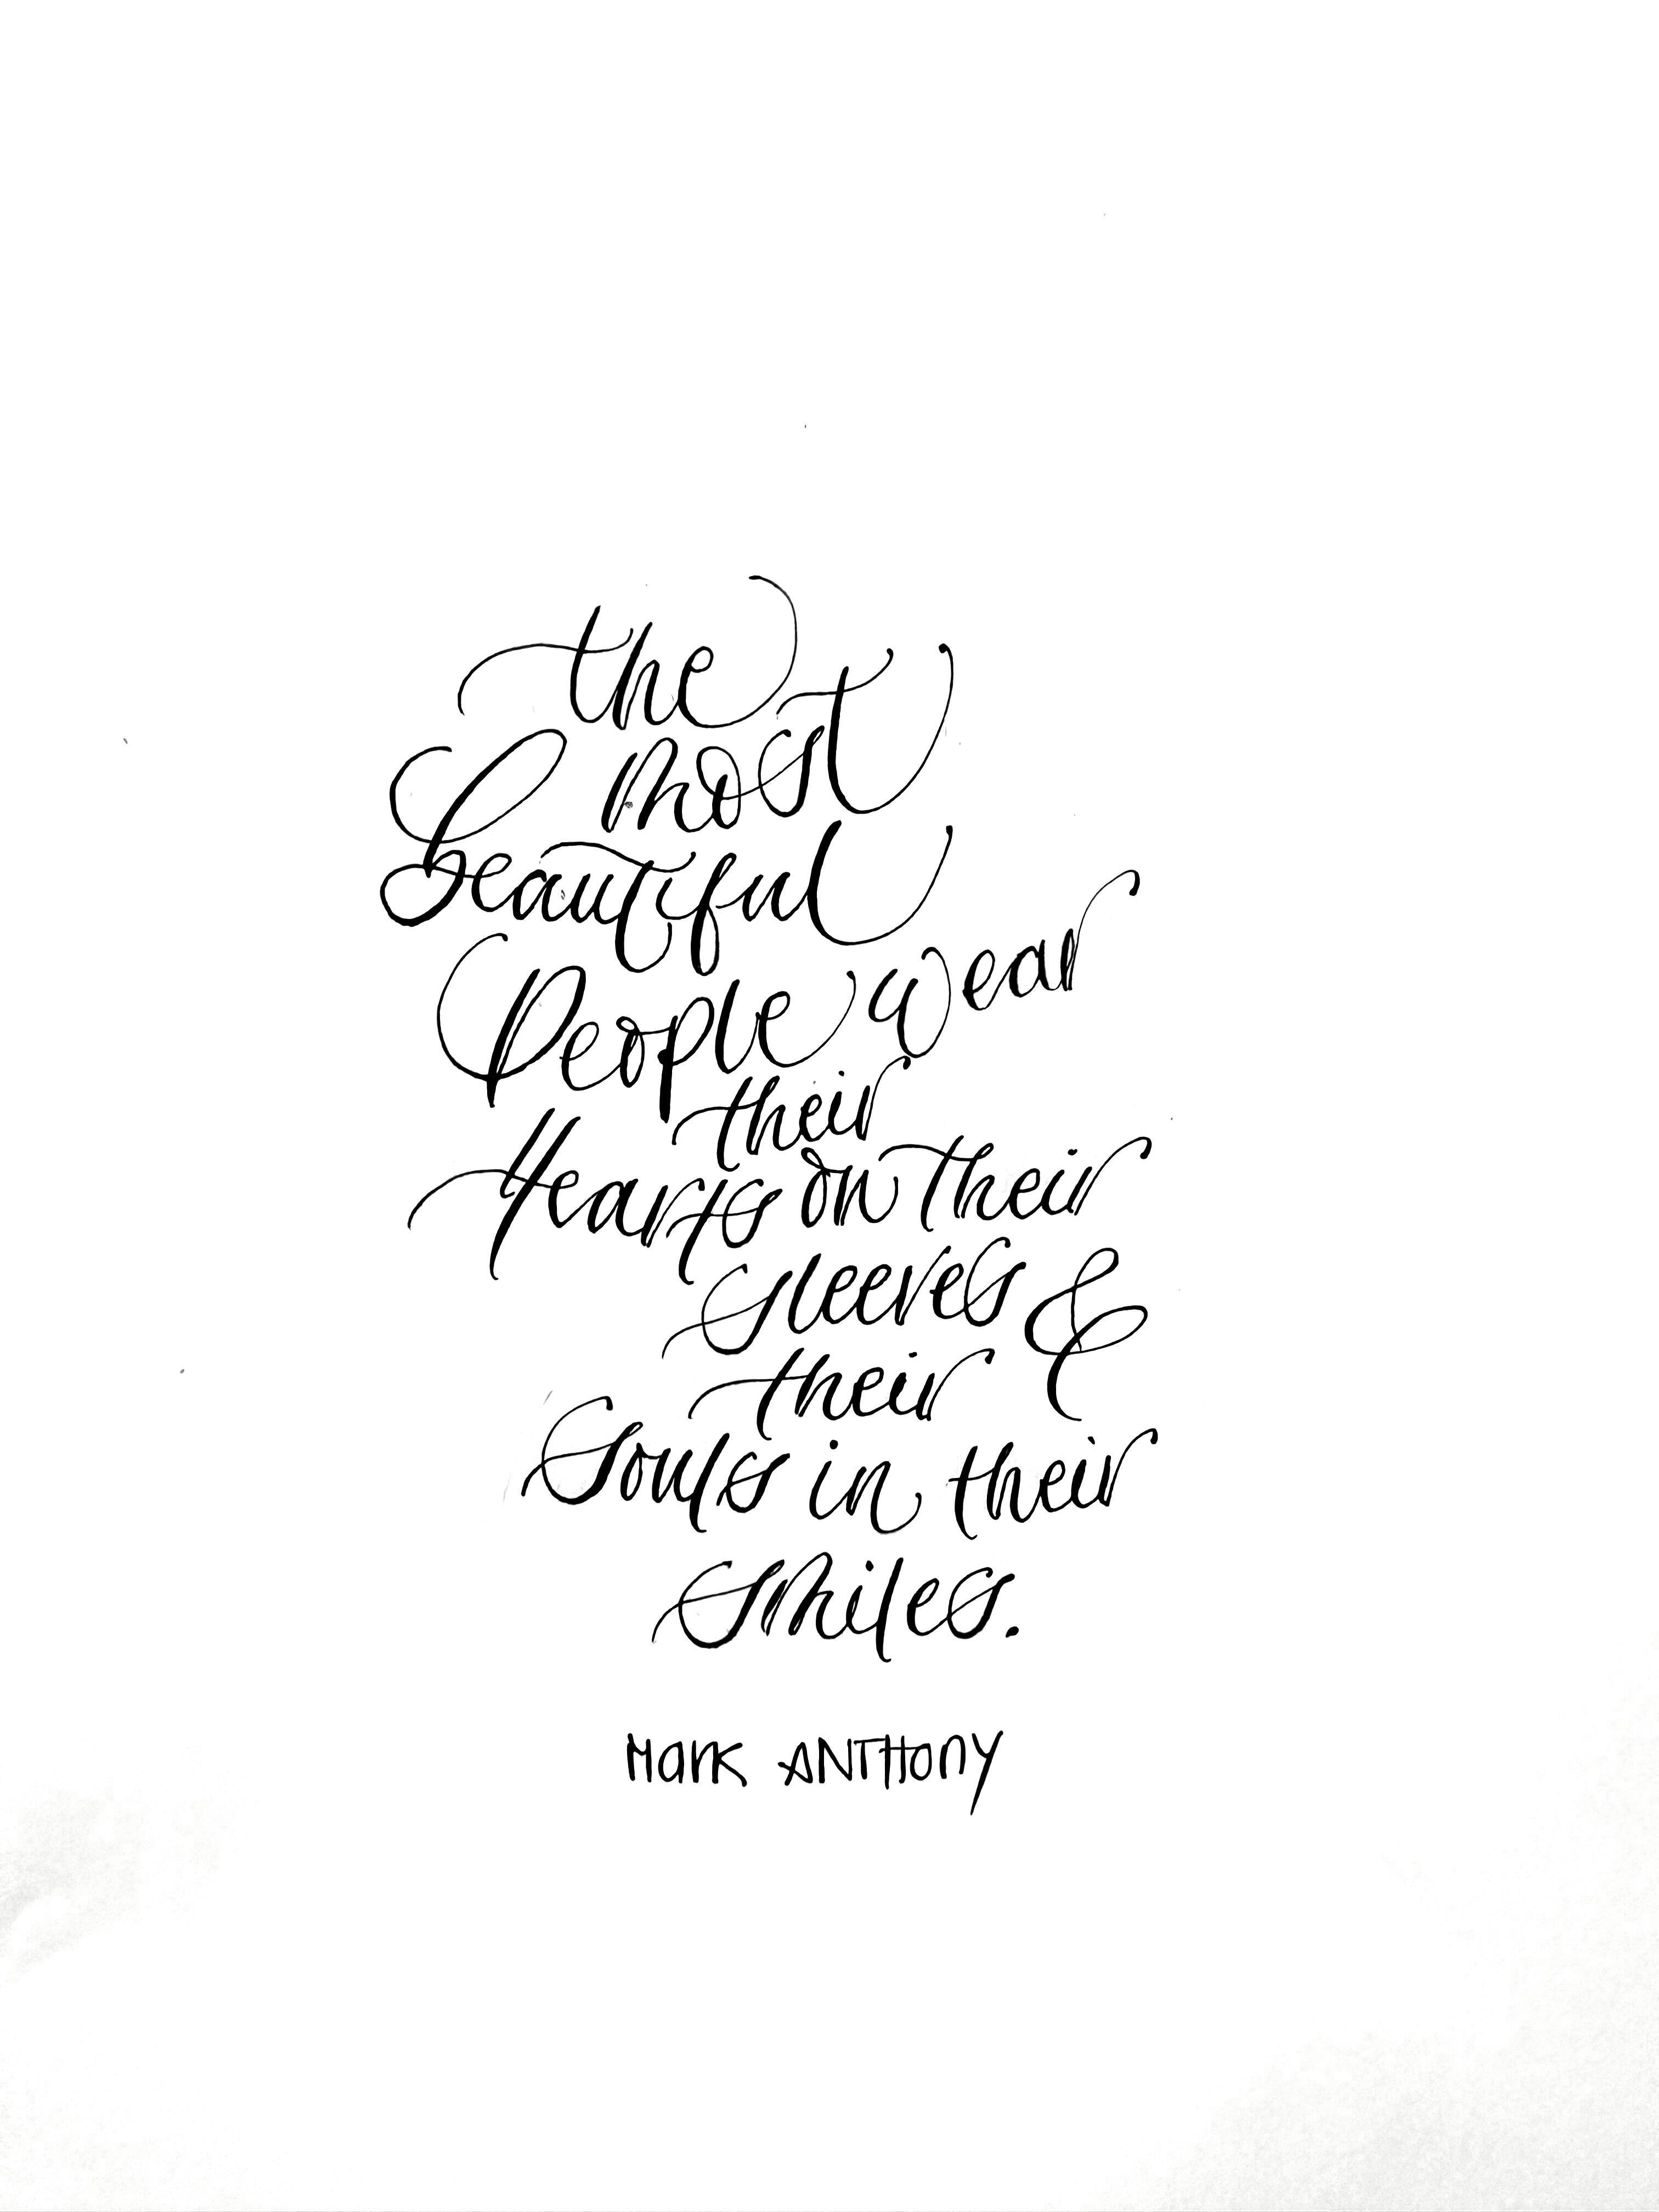 the
most
beautiful
People wear
their
Hearts on their
sleeves &
their
Souls in their
smiles.
Mark ANTHony